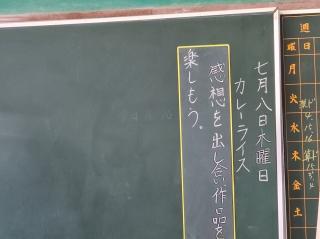 七月八日木曜日
カレーライス
感想を出し合い作品を
楽しもう。
週
曜日
月
火
水
木
金
土